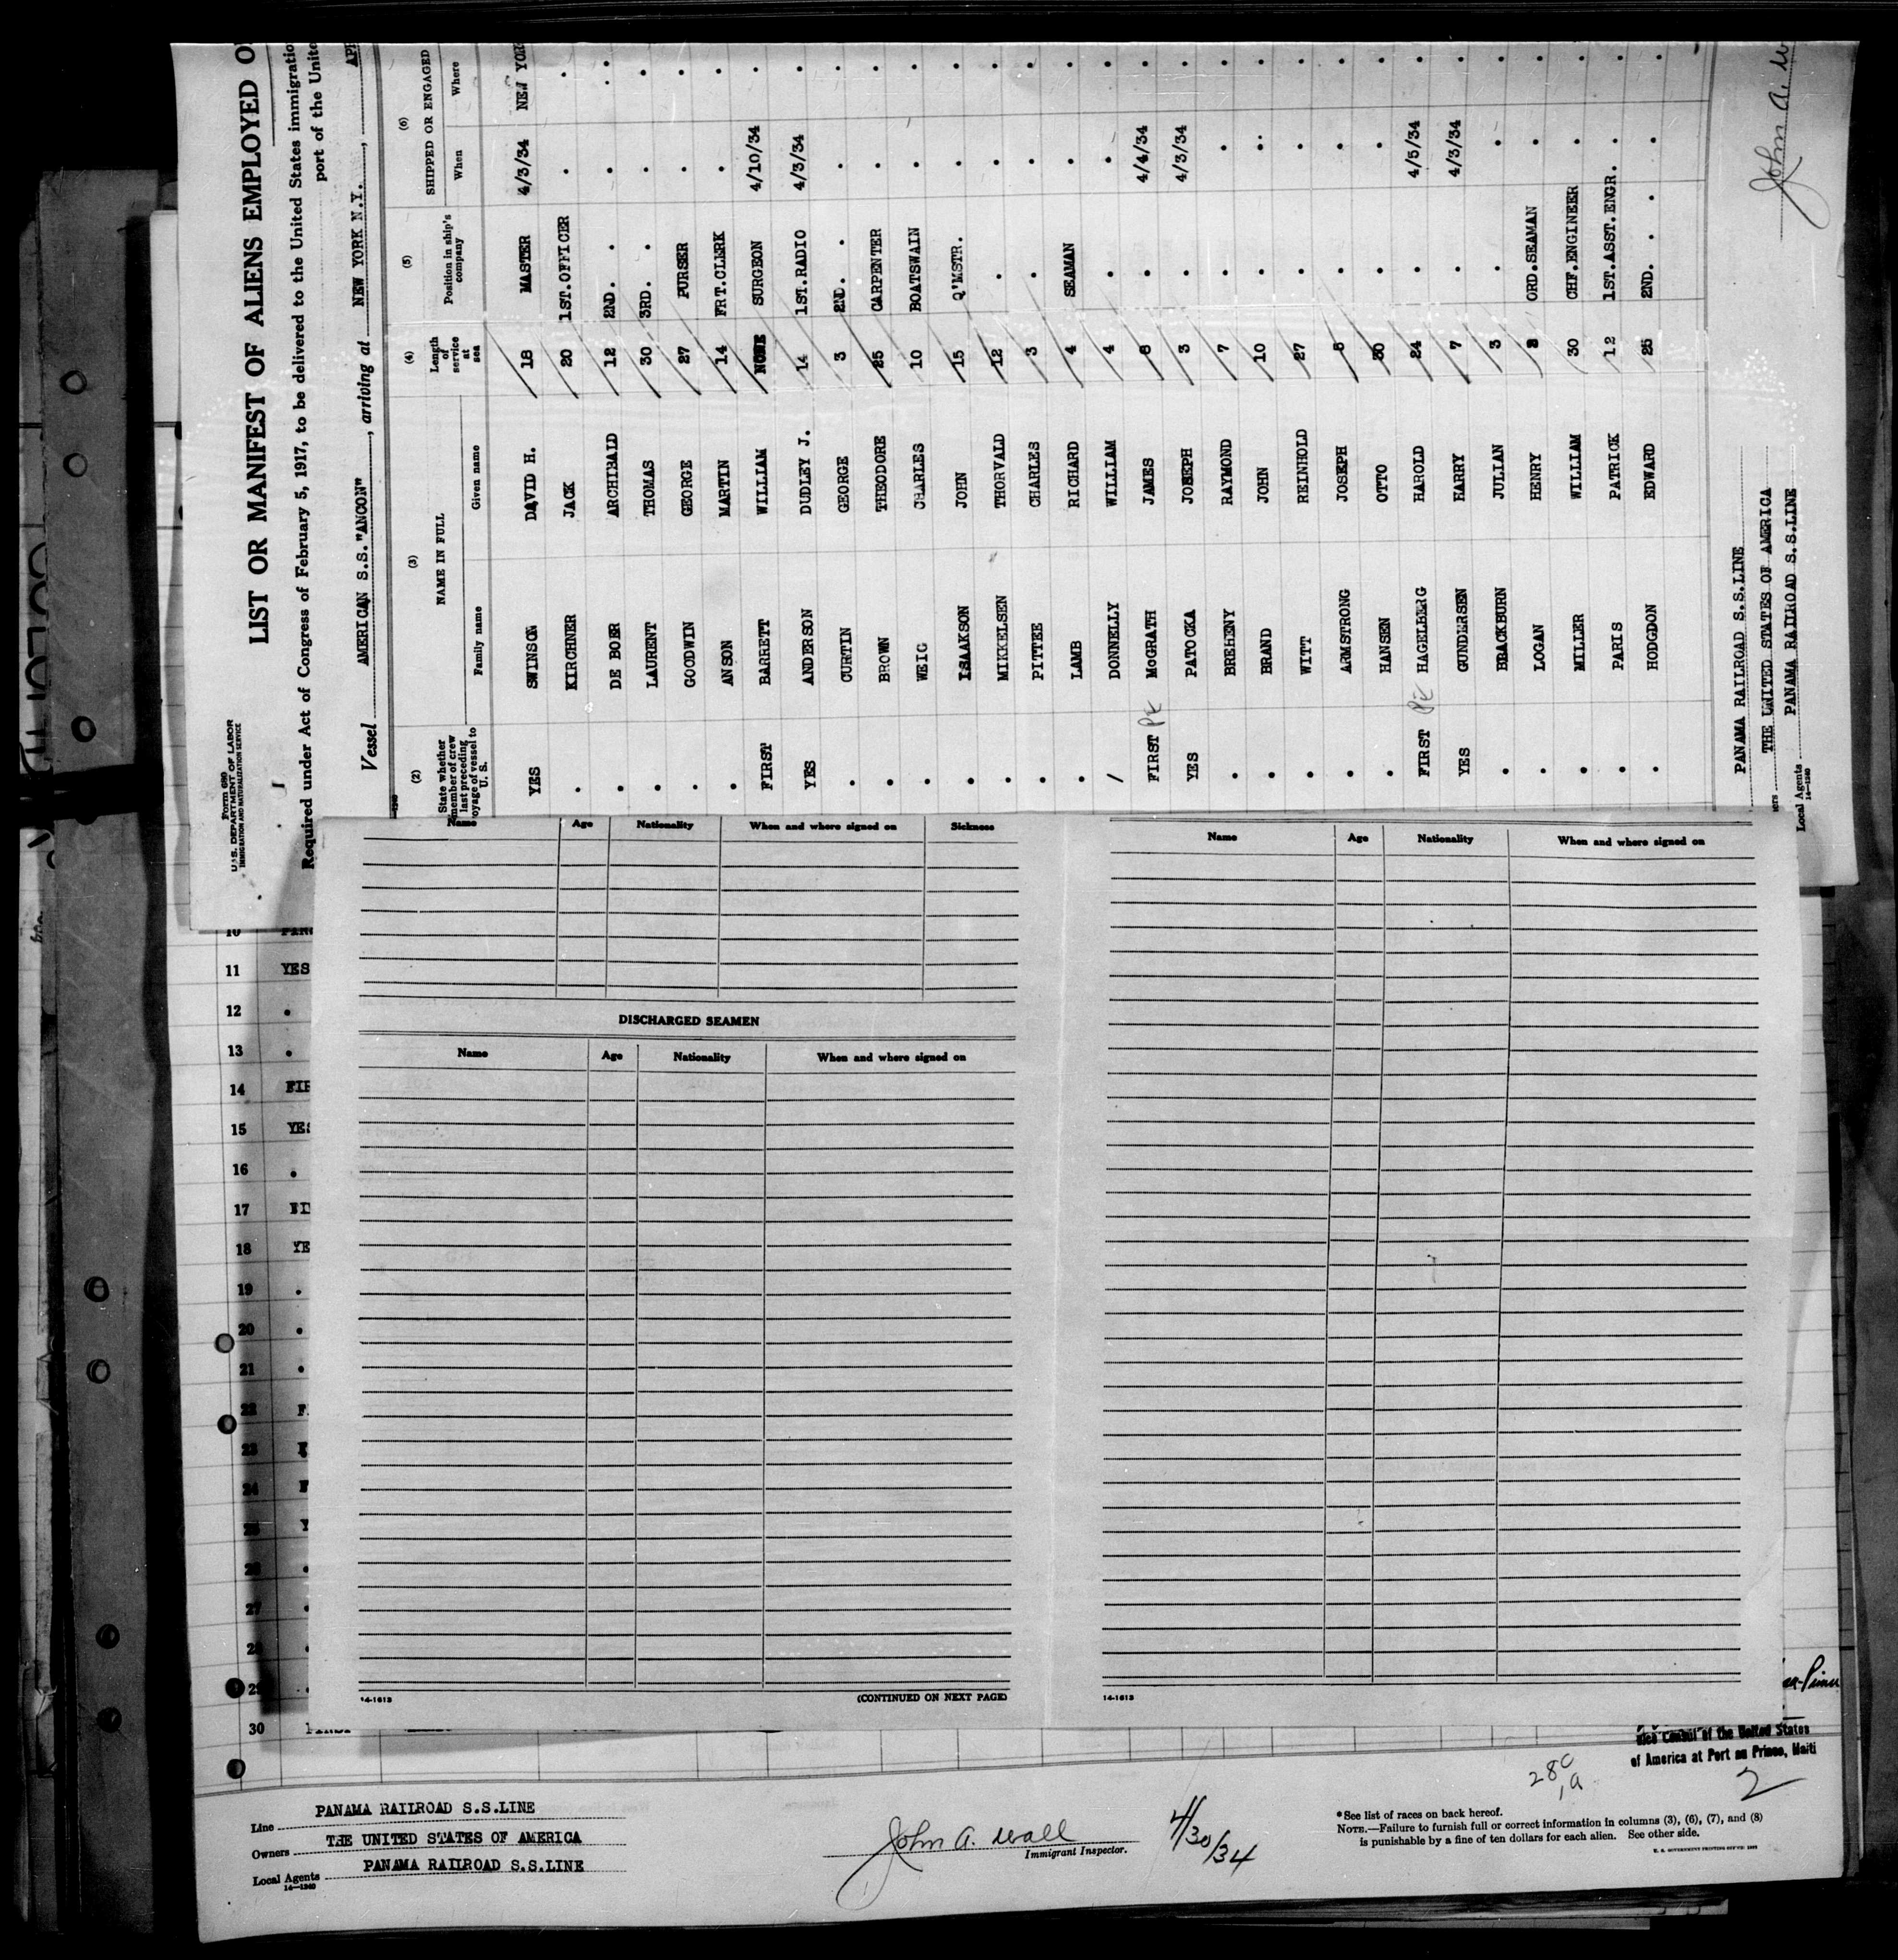 Form 680
U.S. DEPARTMENT OF LABOR
IMMIGRATION AND NATURALIZATION SERVICE
LIST OR MANIFEST OF ALIENS EMPLOYED O
Required under Act of Congress of February 5, 1917, to be delivered to the United States immigratio
port of the Unite
Vessel AMERICAN S.S."ANCON", arriving at NEW YORK N.Y., AP
(2) (3) (4) (5) (6)
State whether member of crew last preceding voyage of vessel to U. S. NAME IN FULL Length of service at sea Position in ship's company SHIPPED OR ENGAGED
Family name Given name When Where
YES SWINSON DAVID H. 18 MASTER 4/3/34 NEW YOR
. KIRCHNER JACK 20 1ST.OFFICER . .
. DE BOER ARCHIBALD 12 2ND. . . . .
. LAURENT THOMAS 30 3RD. . . .
. GOODWIN GEORGE 27 PURSER . .
. ANSON MARTIN 14 FRT.CLERK . .
FIRST BARRETT WILLIAM NONE SURGEON 4/10/34 .
YES ANDERSON DUDLEY J. 14 1ST.RADIO 4/3/34 .
. CURTIN GEORGE 3 2ND. . . .
. BROWN THEODORE 25 CARPENTER . .
. WEIG CHARLES 10 BOATSWAIN . .
. ISAAKSON JOHN 15 Q'MSTR. . .
. MIKKELSEN THORVALD 12 . . .
. PITTEE CHARLES 3 . . .
. LAMB RICHARD 4 SEAMAN . .
/ DONNELLY WILLIAM 4 . . .
FIRST McGRATH JAMES 8 . 4/4/34 .
YES PATOCKA JOSEPH 3 . 4/3/34 .
. BREHENY RAYMOND 7 . . .
. BRAND JOHN 10 . . .
. WITT REINHOLD 27 . . .
. ARMSTRONG JOSEPH 5 . . .
. HANSEN OTTO 30 . . .
FIRST HAGELBERG HAROLD 24 . 4/5/34 .
YES GUNDERSEN HARRY 7 . 4/3/34 .
. BRACKBURN JULIAN 3 . . .
. LOGAN HENRY ORD.SEAMAN . .
. MILLER WILLIAM 30 CHF.ENGINEER . .
. PARIS PATRICK 12 1ST.ASST.ENGR. . .
. HODGDON EDWARD 25 2ND. . . . .
PANAMA RAILROAD S.S.LINE
THE UNITED STATES OF AMERICA
Local Agents PANAMA RAILROAD S.S.LINE
14-1240
John A. W
Name Age Nationality When and where signed on Sickness
DISCHARGED SEAMEN
Name Age Nationality When and where signed on
14-1613 (CONTINUED ON NEXT PAGE)
Name Age Nationality When and where signed on
14-1613
10
11 YES
12 .
13 .
14 FIR
15 YES
16 .
17 FI
18 YE
19 .
20 .
21 .
22 F
23
24 F
25 Y
26 .
27 .
28 .
29 .
30 FIRST
Vice Consul of the United States
of America at Port au Prince, Haiti
2
Line PANAMA RAILROAD S.S.LINE
Owners THE UNITED STATES OF AMERICA
Local Agents PANAMA RAILROAD S.S.LINE
14-1240
John A. Wall
Immigrant Inspector.
4/30/34
*See list of races on back hereof.
NOTE.—Failure to furnish full or correct information in columns (3), (6), (7), and (8)
is punishable by a fine of ten dollars for each alien. See other side.
U. S. GOVERNMENT PRINTING OFFICE